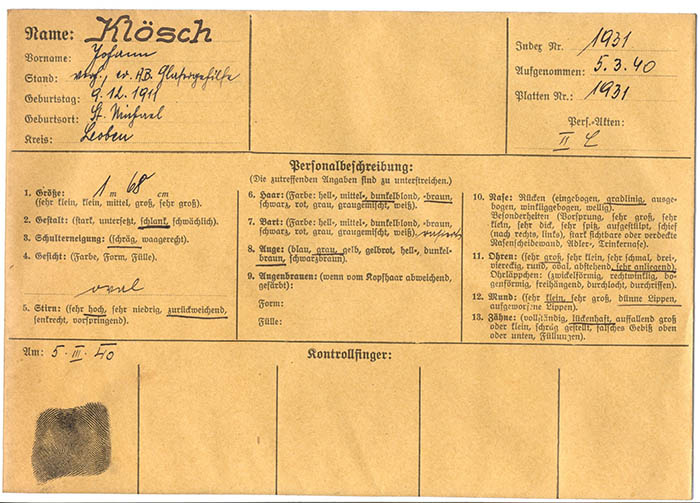 Name: Klösch
Vorname: Johann
Stand: verh., ev. AB. Glasergehilfe
Geburtstag: 9.12.1911
Geburtsort: St. Michael
Kreis: Leoben
Index Nr. 1931
Aufgenommen: 5.3.40
Platten Nr.: 1931
Pers.-Akten:
II
Personalbeschreibung:
(Die zutreffenden Angaben sind zu unterstreichen.)
1. Größe: 1 m 68 cm
(sehr klein, klein, mittel, groß, sehr groß).
2. Gestalt: (stark, untersetzt, schlank, schwächlich).
3. Schulterneigung: (schräg, waagerecht).
4. Gesicht: (Farbe, Form, Fülle).
oval
5. Stirn: (sehr hoch, sehr niedrig, zurückweichend,
senkrecht, vorspringend).
6. Haar: (Farbe: hell-, mittel-, dunkelblond, -braun,
schwarz, rot, grau, graugemischt, weiß).
7. Bart: (Farbe: hell-, mittel-, dunkelblond, -braun,
schwarz, rot, grau, graugemischt, weiß) rasiert
8. Auge: (blau, grau, gelb, gelbrot, hell-, dunkel-
braun, schwarzbraun).
9. Augenbrauen: (wenn vom Kopfhaar abweichend,
gefärbt):
Form:
Fülle:
10. Nase: Rücken (eingebogen, gradlinig, ausge-
bogen, winkliggebogen, wellig).
Besonderheiten (Vorsprung, sehr groß, sehr
klein, sehr dick, sehr spitz, aufgestülpt, schief
(nach rechts, links), stark sichtbare oder verdeckte
Nasenscheidewand, Adler-, Trinkernase).
11. Ohren: (sehr groß, sehr klein, sehr schmal, drei-,
viereckig, rund, oval, abstehend, sehr anliegend)
Ohrläppchen: (zwickelförmig, rechtwinklig, bo-
genförmig, freihängend, durchlocht, durchrissen).
12. Mund: (sehr klein, sehr groß, dünne Lippen,
aufgeworfene Lippen).
13. Zähne: (vollständig, lückenhaft, auffallend groß
oder klein, schräg gestellt, falsches Gebiß oben
oder unten, Füllungen).
Am: 5. III. 40
Kontrollfinger: